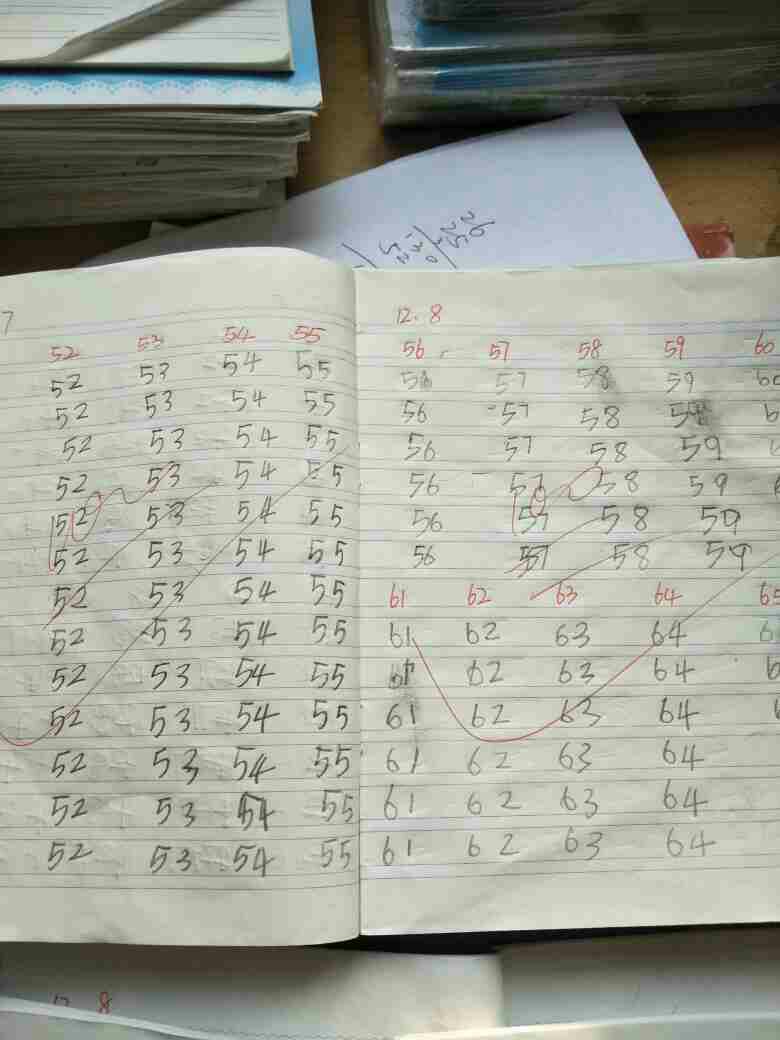 7
52 53 54 55
52 53 54 55
52 53 54 55
52 53 54 55
52 53 54 55
52 53 54 55
52 53 54 55
52 53 54 55
52 53 54 55
52 53 54 55
52 53 54 55
52 53 54 55
52 53 54 55
52 53 54 55
12.8
56 57 58 59 60
56 57 58 59 60
56 57 58 59
56 57 58 59
56 57 58 59
56 57 58 59
56 57 58 59
61 62 63 64 65
61 62 63 64
61 62 63 64
61 62 63 64
61 62 63 64
61 62 63 64
61 62 63 64